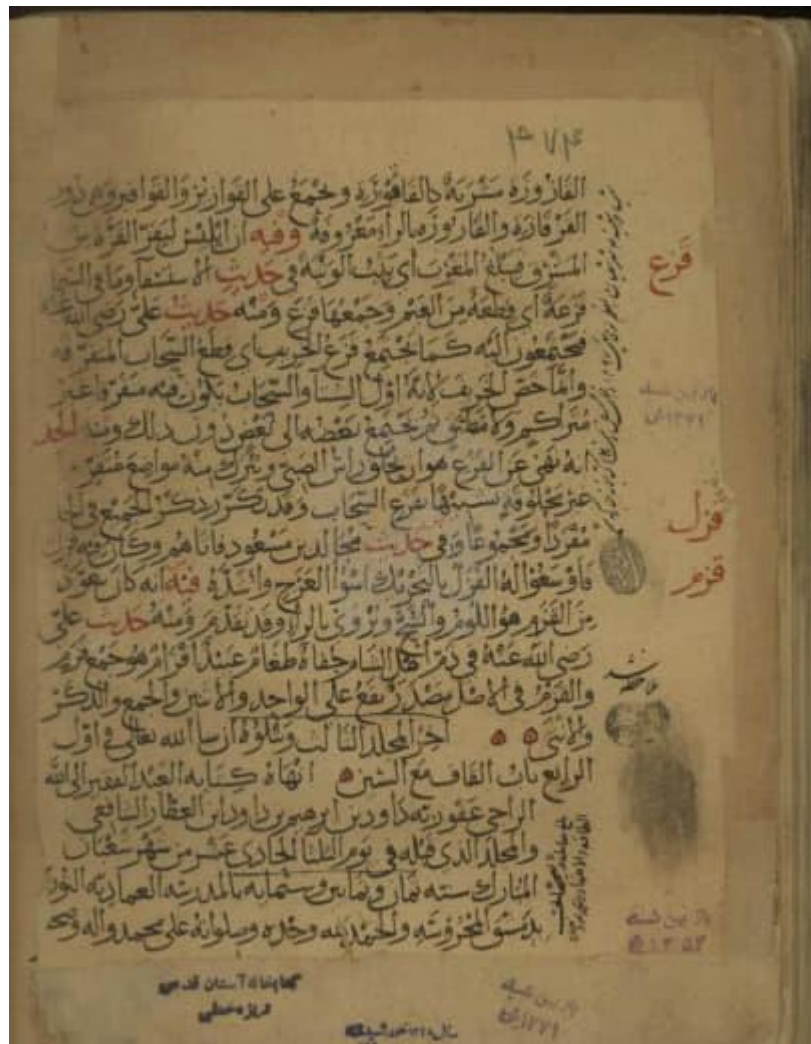 ٣٧٤
القازوزة مشربة كالقاقوزة وتجمع على القوازيز والقواقيز وهي دون
القرقارة والقارورة بالراء معروفة وفيه ان ابليس ليقز القزة من
المشرق فيبلغ المغرب أي يثب الوثبة في حديث الاستسقا وما في السما
قزعة أي قطعة من الغيم وجمعها قزع ومنه حديث علي رضي الله عنه
فيجتمعون اليه كما يجتمع قزع الخريف اي قطع السحاب المتفرقة
وانما خص الخريف لانه اول الشتا والسحاب يكون فيه متفرقا غير
متراكم ولا مطبق ثم يجتمع بعضه الى بعض بعد ذلك ومنه الحديث
انه نهى عن القزع هو ان يحلق راس الصبي ويترك منه مواضع متفرقة
غير محلوقة تشبيها بقزع السحاب وقد تكرر ذكر الجميع في الحديث
مفردا ومجموعا وفي حديث مجالد بن مسعود فاتاهم وكان فيه قزل
فاوسعوا له القزل بالتحريك اسوأ العرج واشده فيه انه كان يتعوذ
من القزم هو اللؤم والشح ويروى بالراء وقد تقدم ومنه حديث علي
رضي الله عنه في ذم أهل الشام جفاة طغام عبيد أقزام هو جمع قزم
والقزم في الاصل مصدر يقع على الواحد والاثنين والجمع والذكر
والانثى ه ه اخر المجلد الثالث ويتلوه ان شا الله تعالى في اول
الرابع باب القاف مع الشين ه انهاه كتابه العبد الفقير الى الله
الراجي عفو ربه داود بن ابرهيم بن داود ابن العطار الشافعي
والمجلد الذي قبله في يوم الثلثا الحادي عشر من شهر شعبان
المبارك سنه ثمان وثمانين وستمايه بالمدرسه العماديه النوريه
بدمشق المحروسه والحمد لله وحده وصلواته على محمد واله وصحبه
قزع
قزل
قزم
ملاحظه شد
بازبین شد
بازبین شد
١٣٥٣
كتابخانه آستان قدس
بازبین شد